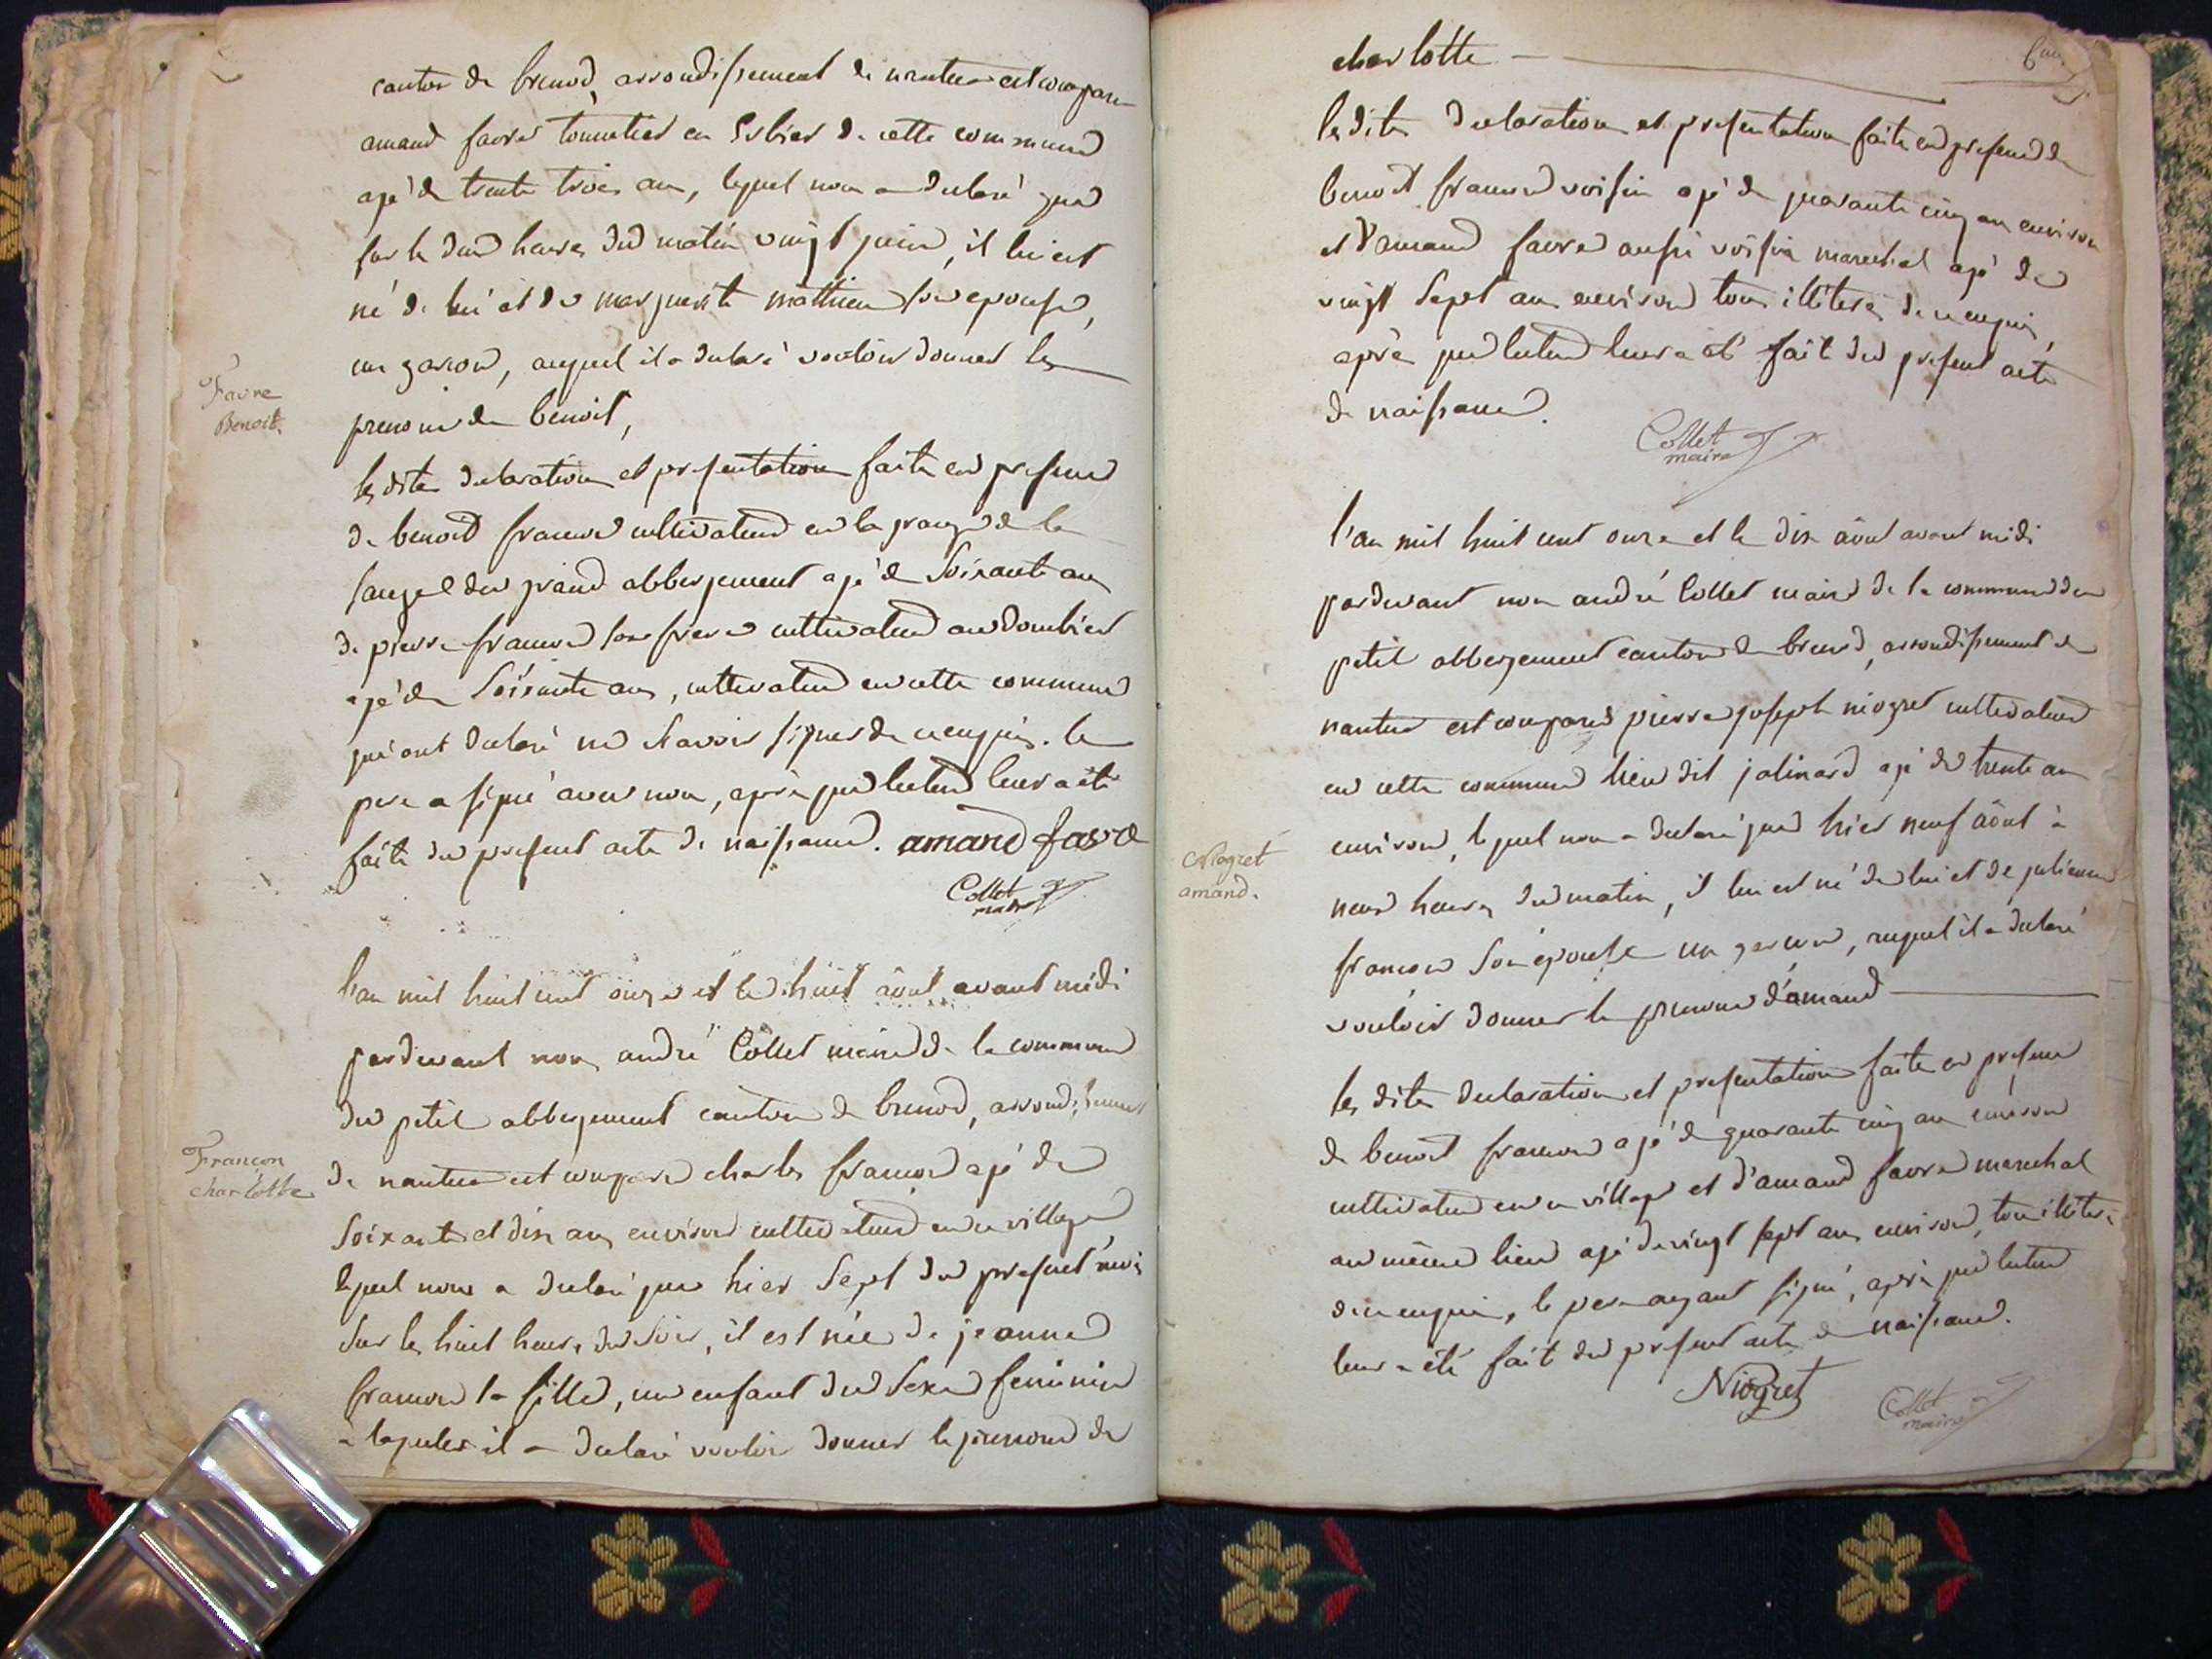 canton de brenod, arrondissement de nantua est comparu
amand favre tonnelier en Corbier de cette commune
agé de trente trois ans, lequel nous a declaré que
sur les deux heures du matin vingt juin, il lui est
né de lui et de marguerite mathieu son epouse,
un garcon, auquel il a declaré vouloir donner le
Favre
Benoit.
prenom de benoit,
les dites declaration et presentation faites en presence
de benoit francon cultivateur en la grange de la
du grand abbergement agé de Soixante ans
de pierre francon son frere cultivateur au
agé de Soixante ans, cultivateur en cette commune
qui ont declaré ne Scavoir signer de ce enquis. le
pere a signé avec nous, après que lecture leur a été
faite du present acte de naissance. amand favre
Collet
maire
l'an mil huit cent onze et le huit août avant midi
pardevant nous andré Collet maire de la commune
du petit abbergement canton de brenod, arrondissement
Françon
charlotte
de nantua est comparu charles francon agé de
Soixante et dix ans environ cultivateur en ce village
lequel nous a declaré que hier Sept du present mois
Sur les huit heures du Soir, il est née de jeanne
francon sa fille, un enfant du Sexe feminin
a laquelle il a declaré vouloir donner le prenom de
charlotte
les dites declaration et presentation faites en presence de
benoit francon voisin agé de quarante cinq ans environ
et d'amand favre aussi voisin marechal agé de
vingt Sept ans environ tous illiterés de ce enquis,
après que lecture leur a été fait du present acte
de naissance.
Collet
maire
l'an mil huit cent onze et le dix août avant midi
pardevant nous andré Collet maire de la commune du
petit abbergement canton de brenod, arrondissement de
nantua est comparu pierre joseph niogret cultivateur
en cette commune lieu dit jalinard agé de trente ans
environ, lequel nous a declaré que hier neuf août à
Niogret
amand.
neuf heures du matin, il lui est né de lui et de julienne
françon Son épouse un garcon, auquel il a declaré
vouloir donner le prenom d'amand
les dites declaration et presentation faites en presence
de benoit francon agé de quarante cinq ans environ
cultivateur en ce village et d'amand favre marechal
au même lieu agé de vingt sept ans environ, tous illiterés
de ce enquis, le pere ayant signé, après que lecture
leur a été fait du present acte de naissance.
Niogret
Collet
maire